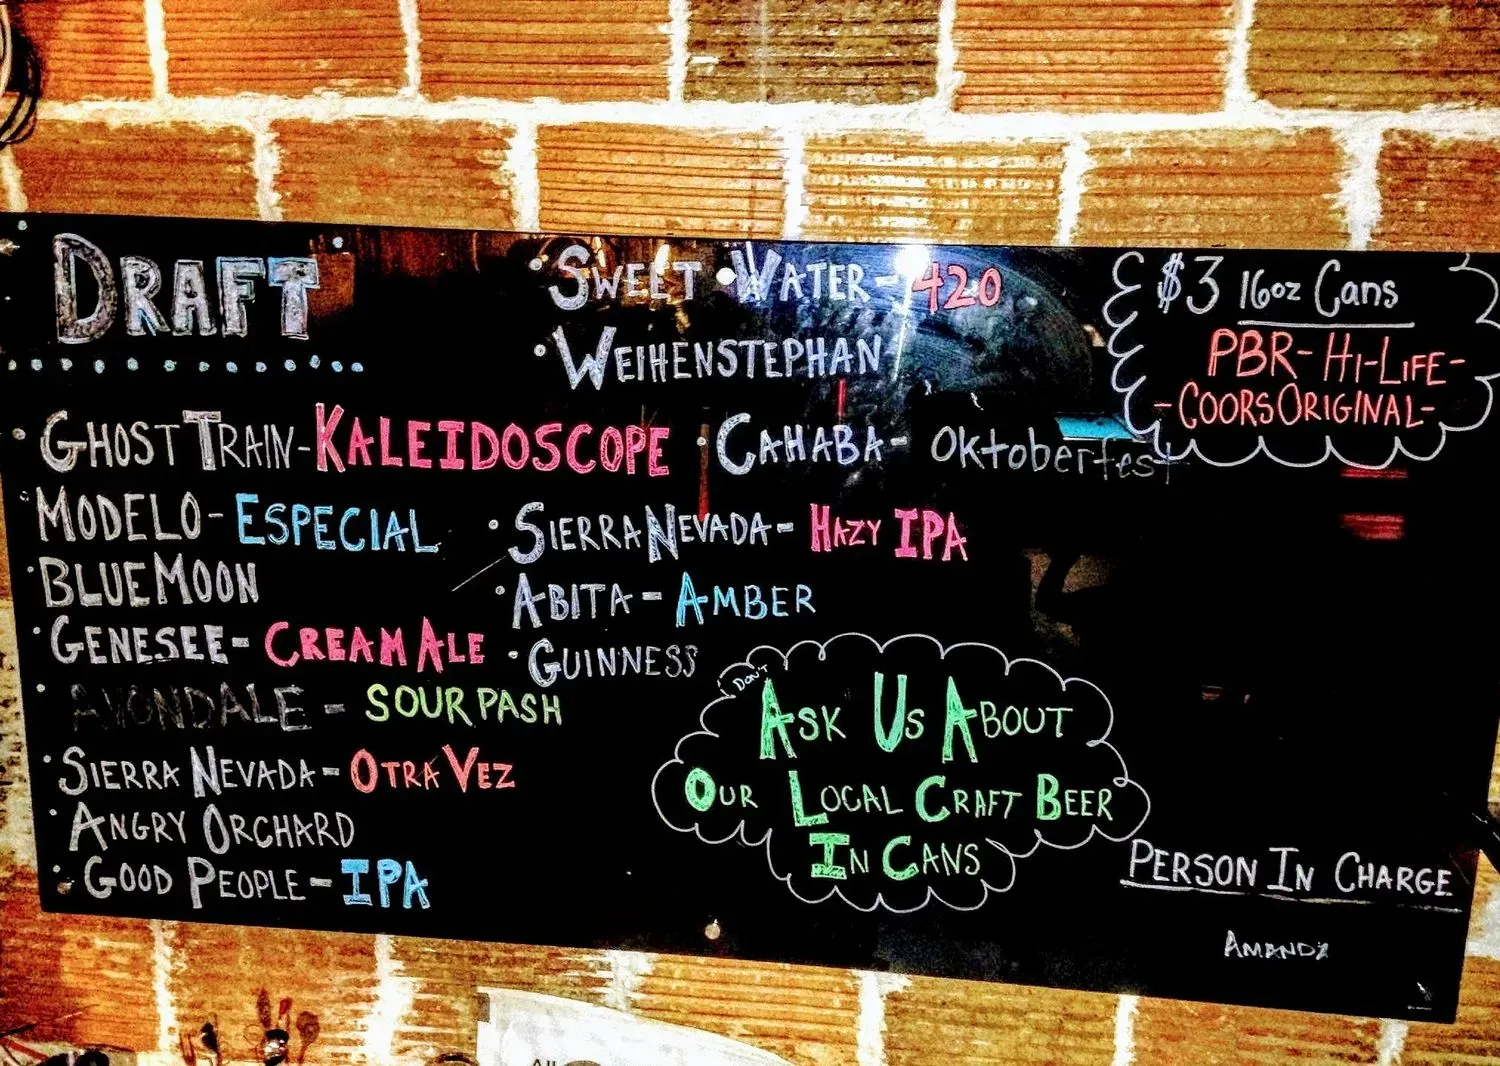 DRAFT
• SWEET WATER - 420
• WEIHENSTEPHAN
• GHOST TRAIN - KALEIDOSCOPE
• CAHABA - Oktoberfest
• MODELO - ESPECIAL
• SIERRA NEVADA - HAZY IPA
• BLUE MOON
• ABITA - AMBER
• GENESEE - CREAM ALE
• GUINNESS
• AVONDALE - SOUR PASH
• SIERRA NEVADA - OTRA VEZ
• ANGRY ORCHARD
• GOOD PEOPLE - IPA
$3 16oz Cans
PBR - HI-LIFE -
- COORS ORIGINAL -
DON'T
ASK US ABOUT
OUR LOCAL CRAFT BEER
IN CANS
PERSON IN CHARGE
AMANDA